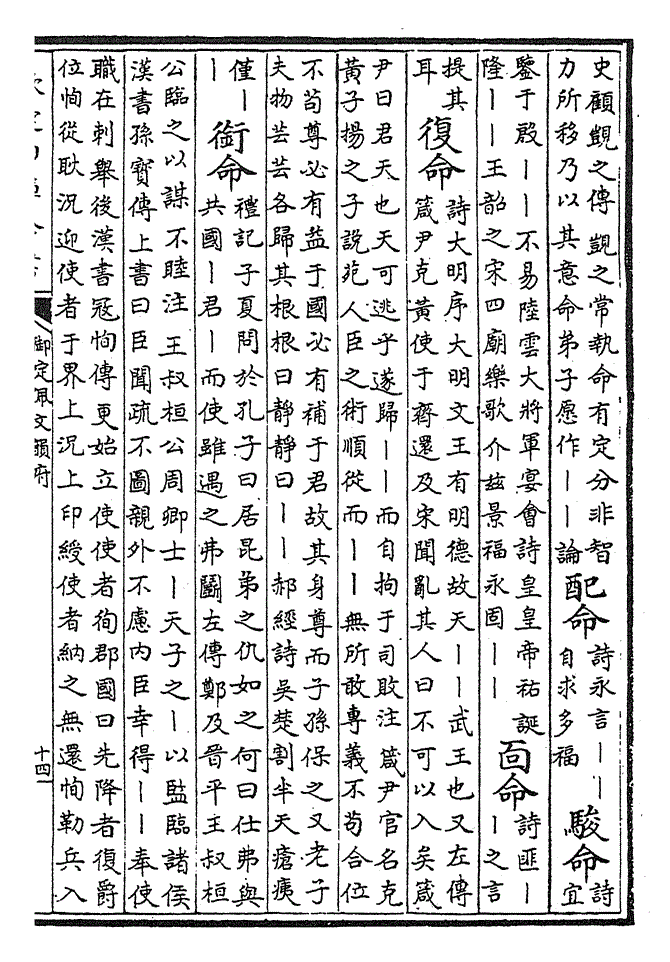 史顧覬之傳覬之常執命有定分非智
力所移乃以其意命弟子愿作——論
配命
詩永言——
自求多福
駿命
詩
宜
鑒于殷——不易陸雲大將軍宴會詩皇皇帝祐誕
隆——王韶之宋四廟樂歌介兹景福永固——
靣命
詩匪—
—之言
提其
耳
復命
詩大明序大明文王有明德故天——武王也又左傳
箴尹克黃使于齊還及宋聞亂其人曰不可以入矣箴
尹曰君天也天可逃乎遂歸——而自拘于司敗注箴尹官名克
黃子揚之子說苑人臣之術順從而——無所敢專義不苟合位
不苟尊必有益于國必有補于君故其身尊而子孫保之又老子
夫物芸芸各歸其根根曰靜靜曰——郝經詩吳楚割半天瘡痍
僅—
—
銜命
禮記子夏問於孔子曰居昆弟之仇如之何曰仕弗與
共國—君—而使雖遇之弗鬬左傳鄭及晉平王叔桓
公臨之以謀不睦注王叔桓公周卿士—天子之—以監臨諸侯
漢書孫寶傳上書曰臣聞疏不圖親外不慮内臣幸得——奉使
職在刺舉後漢書冦恂傳更始立使使者徇郡國曰先降者復爵
位恂從耿況迎使者于界上況上印綬使者納之無還恂勒兵入
御定佩文韻府
十四